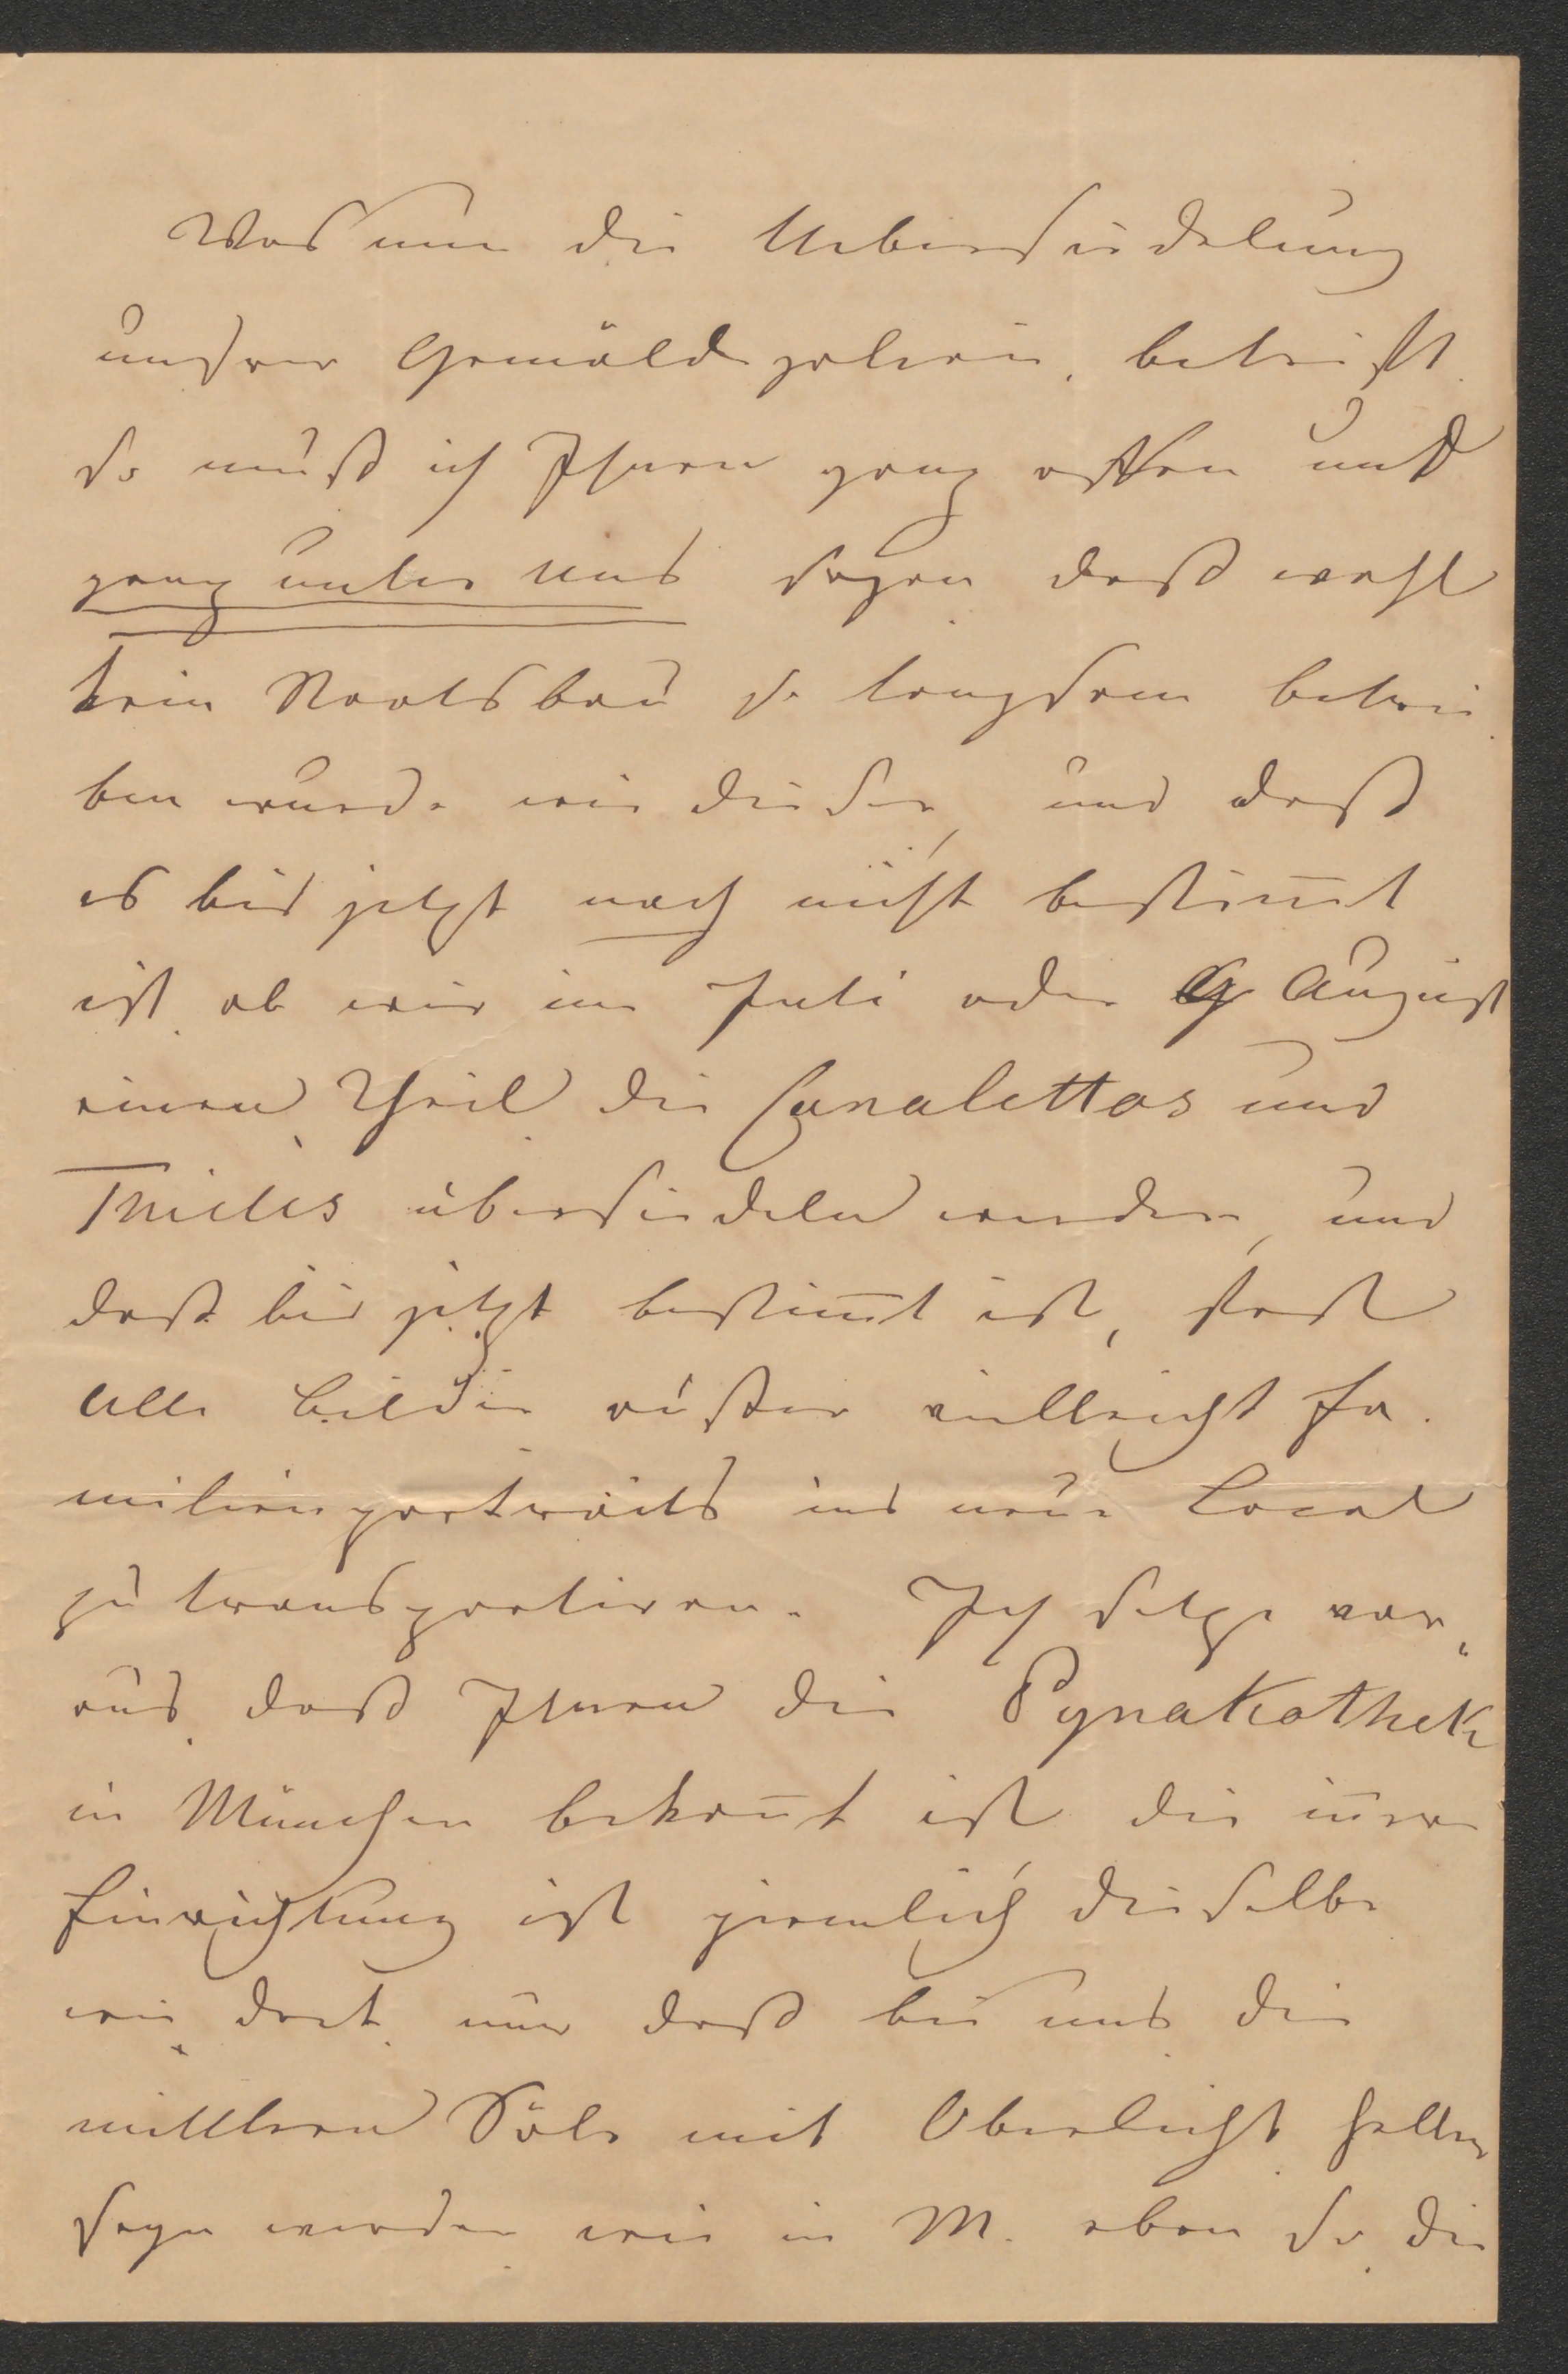 Was nun die Uebersiedelung
unsrer Gemäldegalerie, betrifft
so muß ich Ihnen ganz offen und
ganz unter uns sagen daß wohl
kein Staatsbau so langsam betrie
ben wurde wie dieser, und daß
es bis jetzt noch nicht bestim̅t
ist, ob wir im Juli oder August
einen Theil der Canalettos und
Thieles übersiedeln werden, und
daß bis jetzt bestim̅t ist, fast
alle Bilder außer vielleicht Fa-
milienportraits ins neue Local
zu transportiren. Ich setze vor„
aus, daß Ihnen die Pynakothek
in München bekan̅t ist die in̅ere
Einrichtung ist ziemlich dieselbe
wie dort, nur daß bei uns die
mittleren Säle mit Oberlicht heller
seyn werden, wie in M. eben so, die